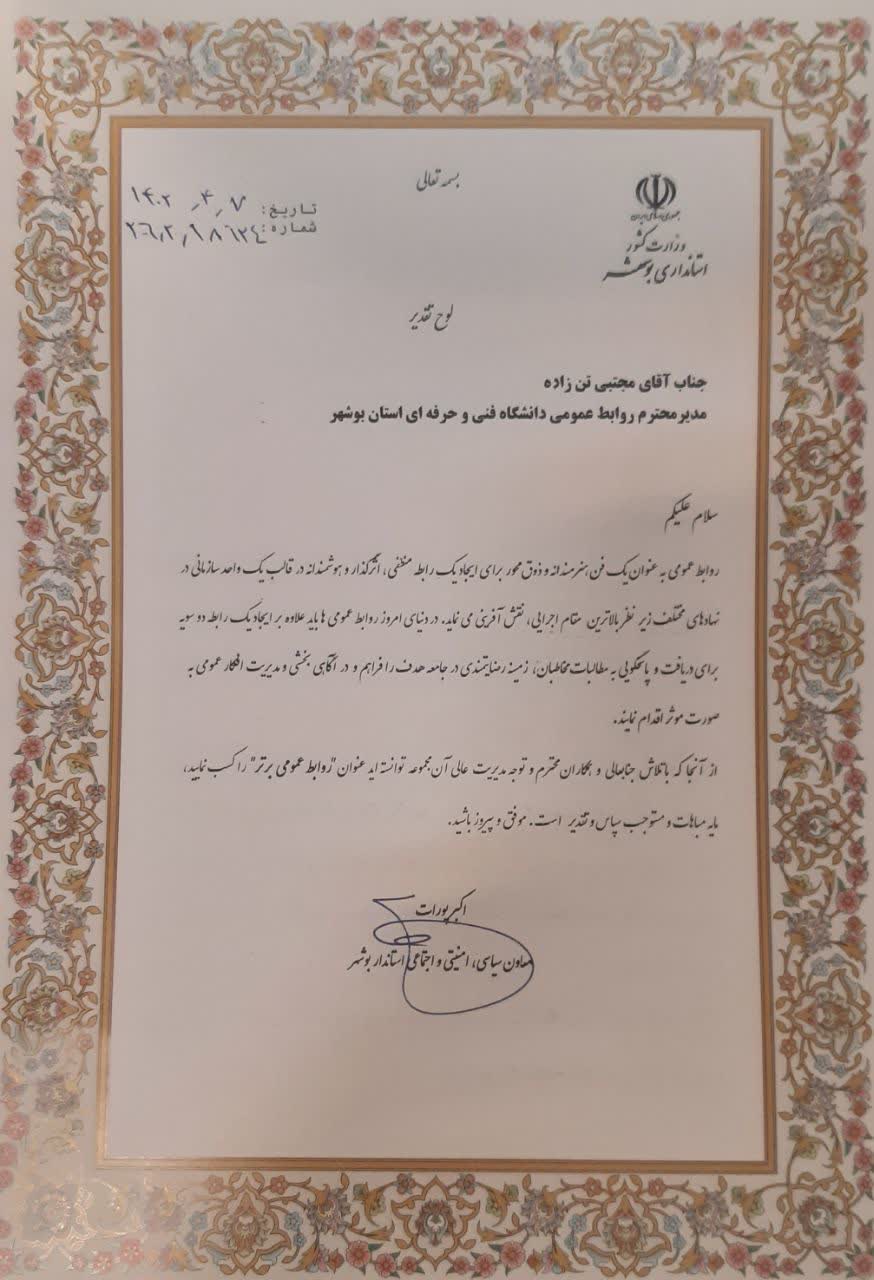 بسمه تعالی
جمهوری اسلامی ایران
وزارت کشور
استانداری بوشهر
تاریخ: ۱۴۰۲/۴/۷
شماره:
لوح تقدیر
جناب آقای مجتبی تن زاده
مدیرمحترم روابط عمومی دانشگاه فنی و حرفه ای استان بوشهر
سلام علیکم
روابط عمومی به عنوان یک فن، هنرمندانه و ذوق محور برای ایجاد یک رابطه منطقی، اثرگذار و هوشمندانه در قالب یک واحد سازمانی در
نهادهای مختلف زیر نظر بالاترین مقام اجرایی، نقش آفرینی می نماید. در دنیای امروز روابط عمومی ها باید علاوه بر ایجاد یک رابطه دو سویه
برای دریافت و پاسخگویی به مطالبات مخاطبان، زمینه رضایتمندی در جامعه هدف را فراهم و در آگاهی بخشی و مدیریت افکار عمومی به
صورت موثر اقدام نمایند.
از آنجا که با تلاش جنابعالی و همکاران محترم و توجه مدیریت عالی آن مجموعه توانسته اید عنوان "روابط عمومی برتر" را کسب نمایید،
مایه مباهات و مستوجب سپاس و تقدیر است. موفق و پیروز باشید.
اکبر پورات
معاون سیاسی، امنیتی و اجتماعی استاندار بوشهر